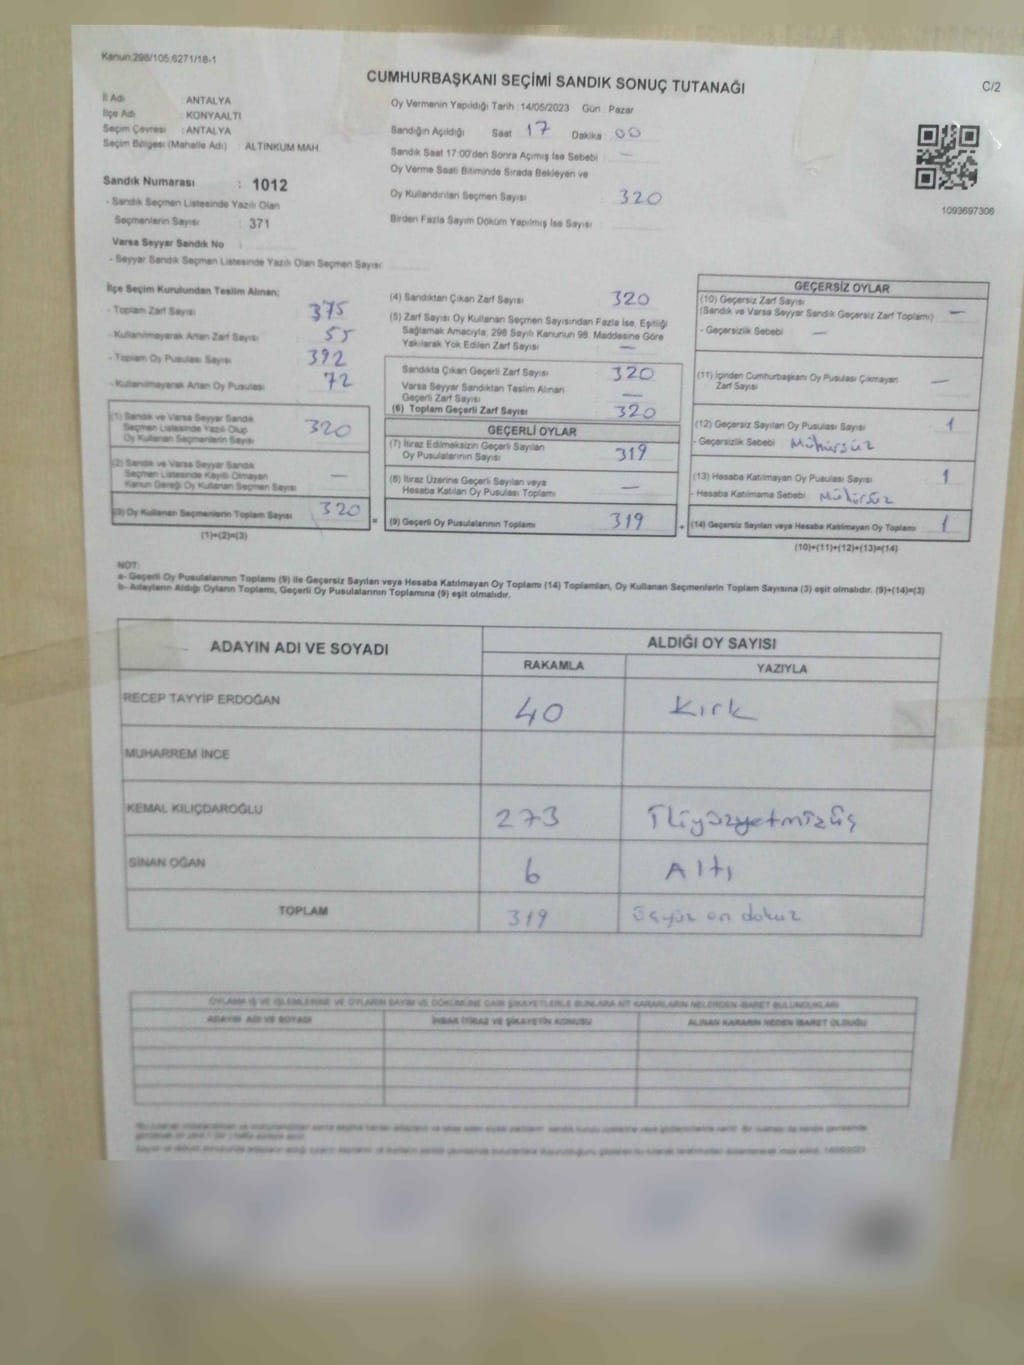 Kanun:298/105,6271/18-1
CUMHURBAŞKANI SEÇİMİ SANDIK SONUÇ TUTANAĞI
C/2
İl Adı : ANTALYA
İlçe Adı : KONYAALTI
Seçim Çevresi : ANTALYA
Seçim Bölgesi (Mahalle Adı) : ALTINKUM MAH.
Sandık Numarası : 1012
- Sandık Seçmen Listesinde Yazılı Olan
Seçmenlerin Sayısı : 371
Varsa Seyyar Sandık No :
- Seyyar Sandık Seçmen Listesinde Yazılı Olan Seçmen Sayısı:
Oy Vermenin Yapıldığı Tarih :14/05/2023 Gün : Pazar
Sandığın Açıldığı Saat 17 Dakika : 00
Sandık Saat 17:00'den Sonra Açımış İse Sebebi : —
Oy Verme Saati Bitiminde Sırada Bekleyen ve
Oy Kullandırılan Seçmen Sayısı : 320
Birden Fazla Sayım Döküm Yapılmış İse Sayısı :
1093697306
İlçe Seçim Kurulundan Teslim Alınan;
- Toplam Zarf Sayısı : 375
- Kullanılmayarak Artan Zarf Sayısı : 55
- Toplam Oy Pusulası Sayısı : 392
- Kullanılmayarak Artan Oy Pusulası : 72
(1) Sandık ve Varsa Seyyar Sandık
Seçmen Listesinde Yazılı Olup
Oy Kullanan Seçmenlerin Sayısı 320
(2) Sandık ve Varsa Seyyar Sandık
Seçmen Listesinde Kayıtlı Olmayan
Kanun Gereği Oy Kullanan Seçmen Sayısı —
(3) Oy Kullanan Seçmenlerin Toplam Sayısı 320
(1)+(2)=(3)
(4) Sandıktan Çıkan Zarf Sayısı 320
(5) Zarf Sayısı Oy Kullanan Seçmen Sayısından Fazla İse, Eşitliği
Sağlamak Amacıyla; 298 Sayılı Kanunun 98. Maddesine Göre
Yakılarak Yok Edilen Zarf Sayısı —
Sandıkta Çıkan Geçerli Zarf Sayısı 320
Varsa Seyyar Sandıktan Teslim Alınan
Geçerli Zarf Sayısı —
(6) Toplam Geçerli Zarf Sayısı 320
GEÇERLİ OYLAR
(7) İtiraz Edilmeksizin Geçerli Sayılan
Oy Pusulalarının Sayısı 319
(8) İtiraz Üzerine Geçerli Sayılan veya
Hesaba Katılan Oy Pusulası Toplamı —
= (9) Geçerli Oy Pusulalarının Toplamı 319
GEÇERSİZ OYLAR
(10) Geçersiz Zarf Sayısı
(Sandık ve Varsa Seyyar Sandık Geçersiz Zarf Toplamı) —
- Geçersizlik Sebebi : —
(11) İçinden Cumhurbaşkanı Oy Pusulası Çıkmayan
Zarf Sayısı —
(12) Geçersiz Sayılan Oy Pusulası Sayısı 1
- Geçersizlik Sebebi : Mühürsüz
(13) Hesaba Katılmayan Oy Pusulası Sayısı 1
- Hesaba Katılmama Sebebi : Mühürsüz
+ (14) Geçersiz Sayılan veya Hesaba Katılmayan Oy Toplamı 1
(10)+(11)+(12)+(13)=(14)
NOT:
a- Geçerli Oy Pusulalarının Toplamı (9) ile Geçersiz Sayılan veya Hesaba Katılmayan Oy Toplamı (14) Toplamları, Oy Kullanan Seçmenlerin Toplam Sayısına (3) eşit olmalıdır. (9)+(14)=(3)
b- Adayların Aldığı Oyların Toplamı, Geçerli Oy Pusulalarının Toplamına (9) eşit olmalıdır.
ADAYIN ADI VE SOYADI
ALDIĞI OY SAYISI
RAKAMLA YAZIYLA
RECEP TAYYİP ERDOĞAN 40 Kırk
MUHARREM İNCE
KEMAL KILIÇDAROĞLU 273 İkiyüzyetmizüç
SİNAN OĞAN 6 Altı
TOPLAM 319 üçyüz on dokuz
OYLAMA İŞ VE İŞLEMLERİNE VE OYLARIN SAYIM VE DÖKÜMÜNE DAİR ŞİKAYETLERLE BUNLARA AİT KARARLARIN NELERDEN İBARET BULUNDUKLARI
ADAYIN ADI VE SOYADI İHBAR İTİRAZ VE ŞİKAYETİN KONUSU ALINAN KARARIN NEDEN İBARET OLDUĞU